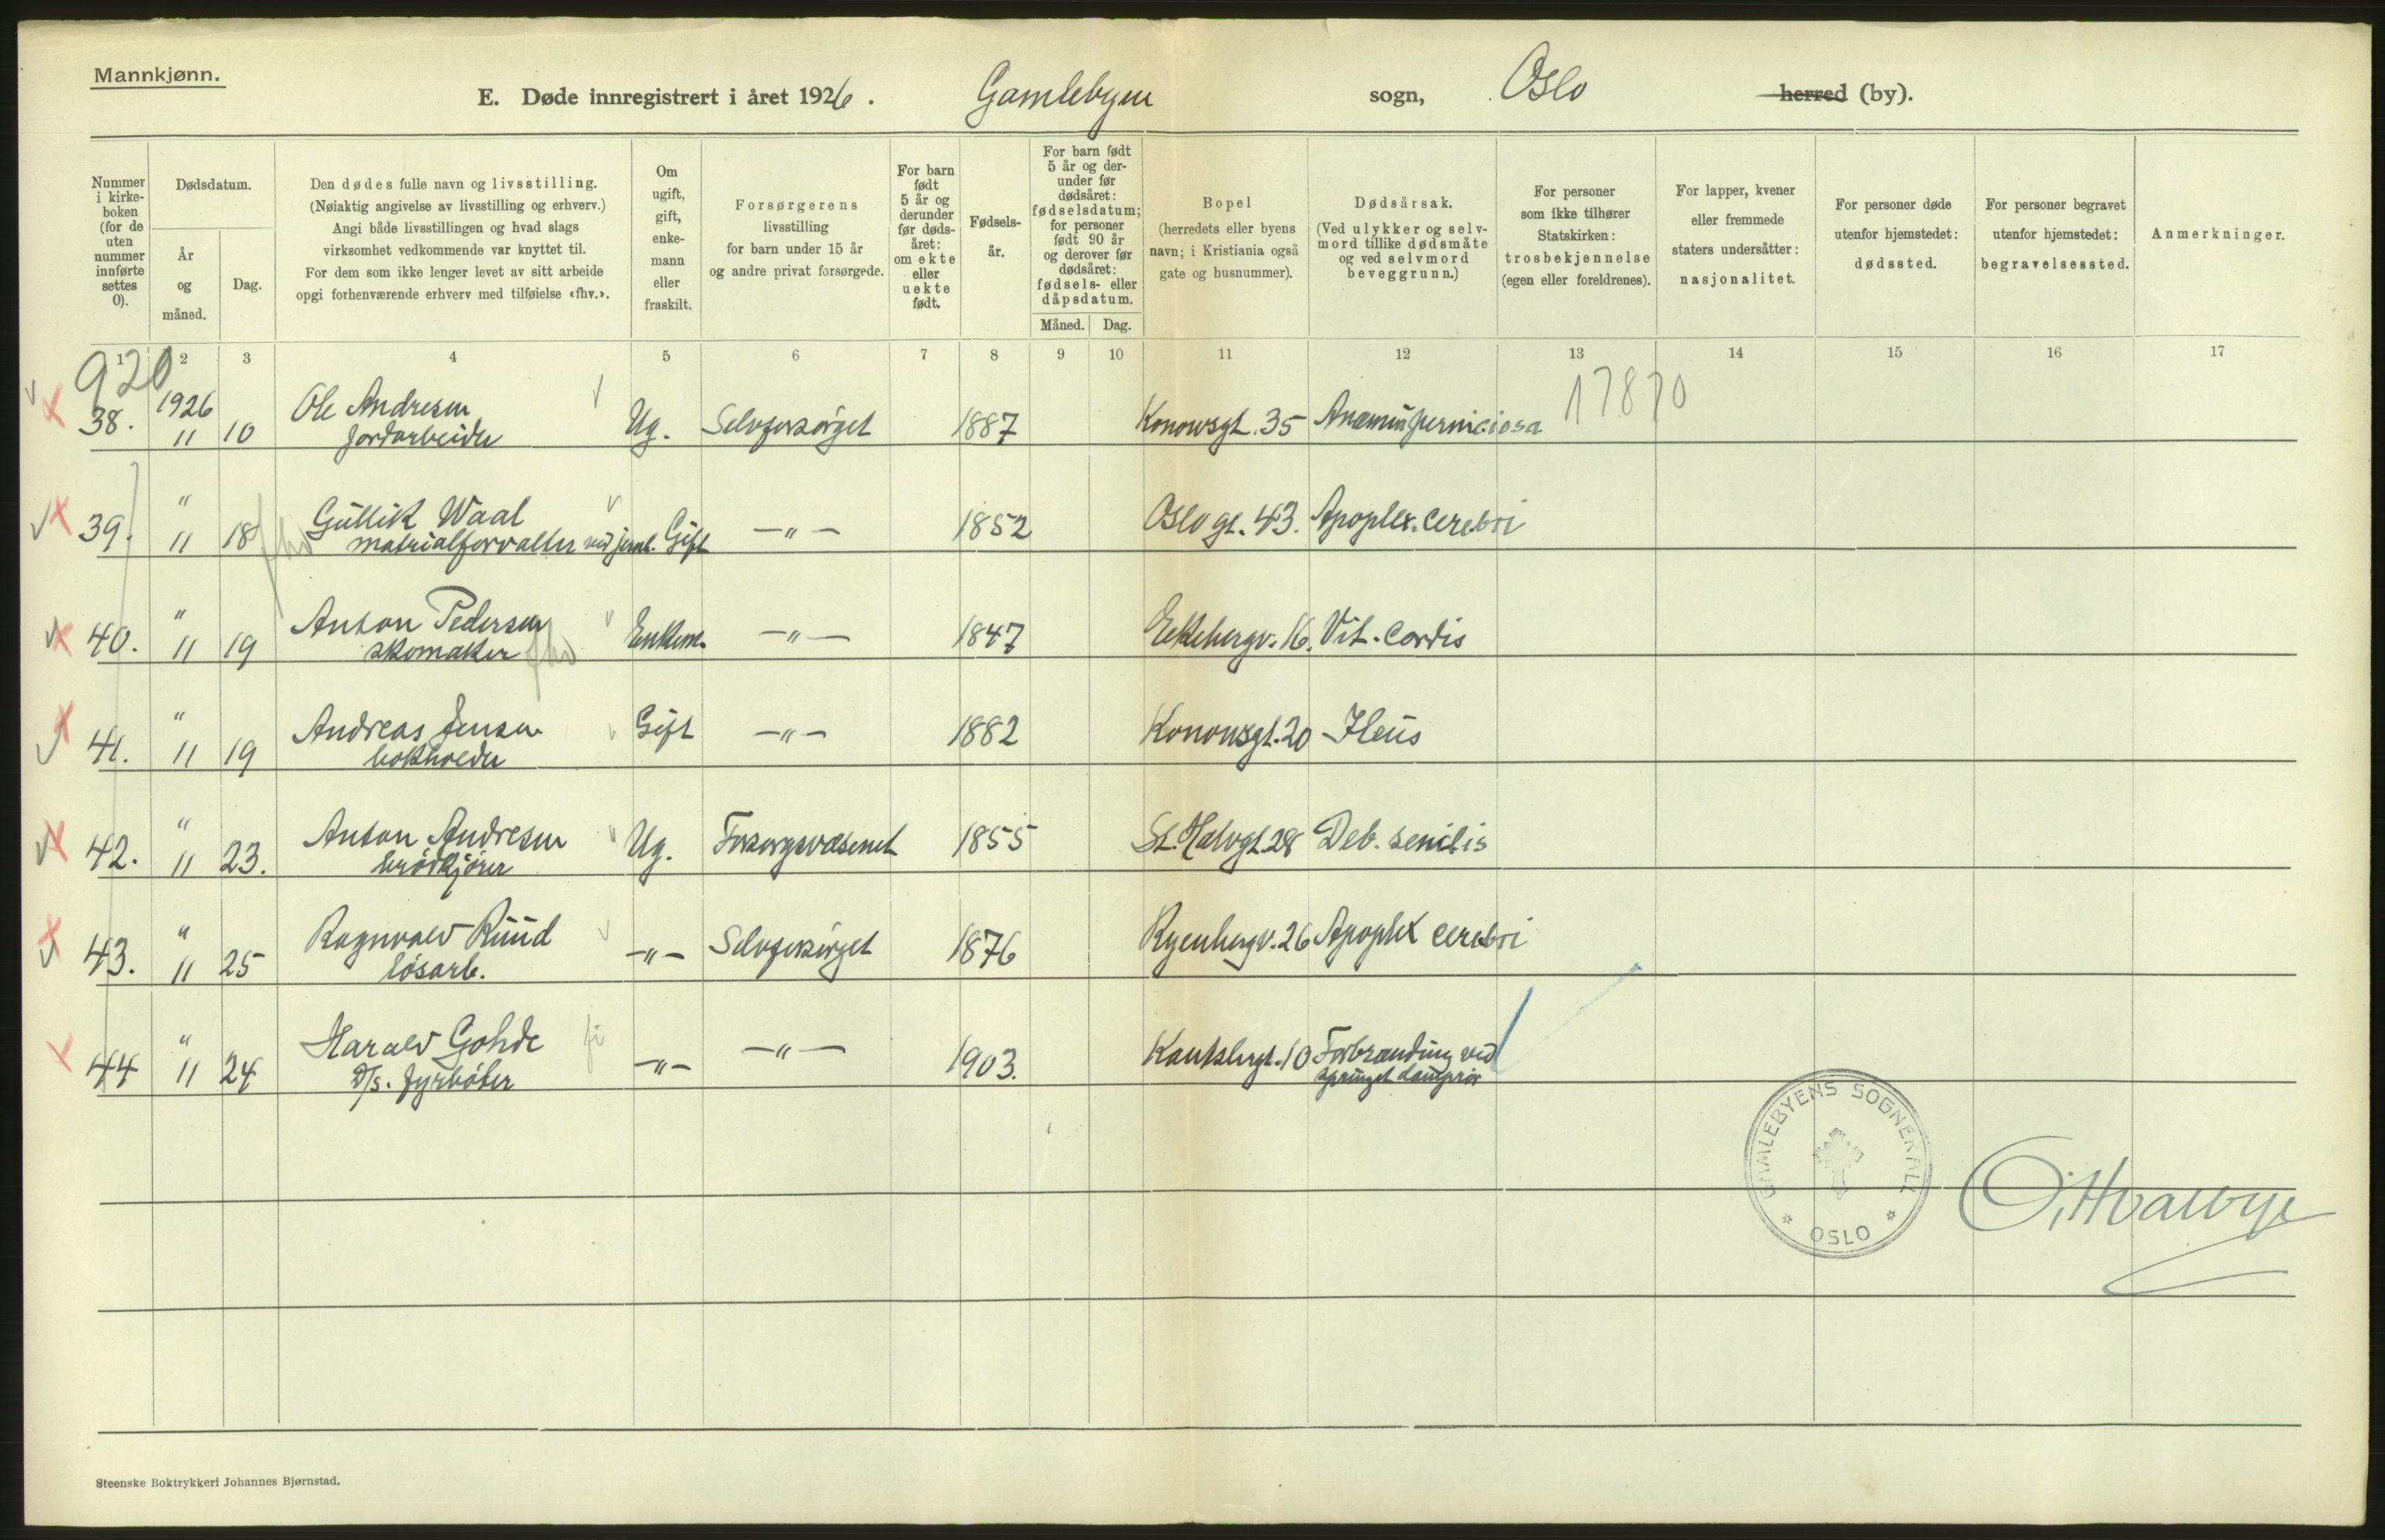 Mannkjønn.
E. Døde innregistrert i året 1926. Gamlebyen sogn, Oslo herred (by).
Nummer i kirkeboken (for de uten nummer innførte settes 0).
Dødsdatum.
År og måned.
Dag.
Den dødes fulle navn og livsstilling.
(Nøiaktig angivelse av livsstilling og erhverv.)
Angi både livsstillingen og hvad slags
virksomhet vedkommende var knyttet til.
For dem som ikke lenger levet av sitt arbeide
opgi forhenværende erhverv med tilføielse «fhv.».
Om ugift, gift, enkemann eller fraskilt.
Forsørgerens
livsstilling
for barn under 15 år
og andre privat forsørgede.
For barn født 5 år og derunder før dødsåret: om ekte eller uekte født.
Fødselsår.
For barn født 5 år og derunder før dødsåret: fødselsdatum; for personer født 90 år og derover før dødsåret: fødsels- eller dåpsdatum.
Måned. Dag.
Bopel
(herredets eller byens
navn; i Kristiania også
gate og husnummer).
Dødsårsak.
(Ved ulykker og selvmord tillike dødsmåte og ved selvmord beveggrunn.)
For personer
som ikke tilhører
Statskirken:
trosbekjennelse
(egen eller foreldrenes).
For lapper, kvener
eller fremmede
staters undersåtter:
nasjonalitet.
For personer døde
utenfor hjemstedet:
dødssted.
For personer begravet
utenfor hjemstedet:
begravelsessted.
Anmerkninger.
1 2 3 4 5 6 7 8 9 10 11 12 13 14 15 16 17
920
17870
38. 1926 11 10 Ole Andresen Ug. Selvforsørget 1887 Konowsgt. 35 Anæmia perniciosa
jordarbeider
39. " 11 18 Gullik Waal Gift —"— 1852 Oslo gt. 43. Apoplex. cerebri
matrialforvalter ved jernb. fhv
40. " 11 19 Anton Pedersen Enkem. —"— 1847 Ekebergv. 16. Vit. cordis
skomaker fhv
41. " 11 19 Andreas Jensen Gift —"— 1882 Konowsgt. 20 Ileus
bokholder
42. " 11 23. Anton Andresen Ug. Forsorgsvæsenet 1855 St. Halvgt. 28 Deb. senilis
brødkjører
43. " 11 25 Ragnvald Ruud —"— Selvforsørget 1876 Ryenbergv. 26 Apoplex cerebri
løsarb.
44 " 11 24 Harald Gohde —"— —"— 1903. 10 Forbrænding ved
D/s. fyrbøter springet damprør
GAMLEBYENS SOGNEKALL
* OSLO *
Steenske Boktrykkeri Johannes Bjørnstad.